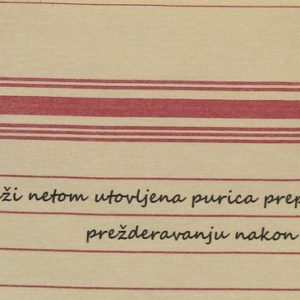 ži netom utovljena purica prep
prežderavanju nakon